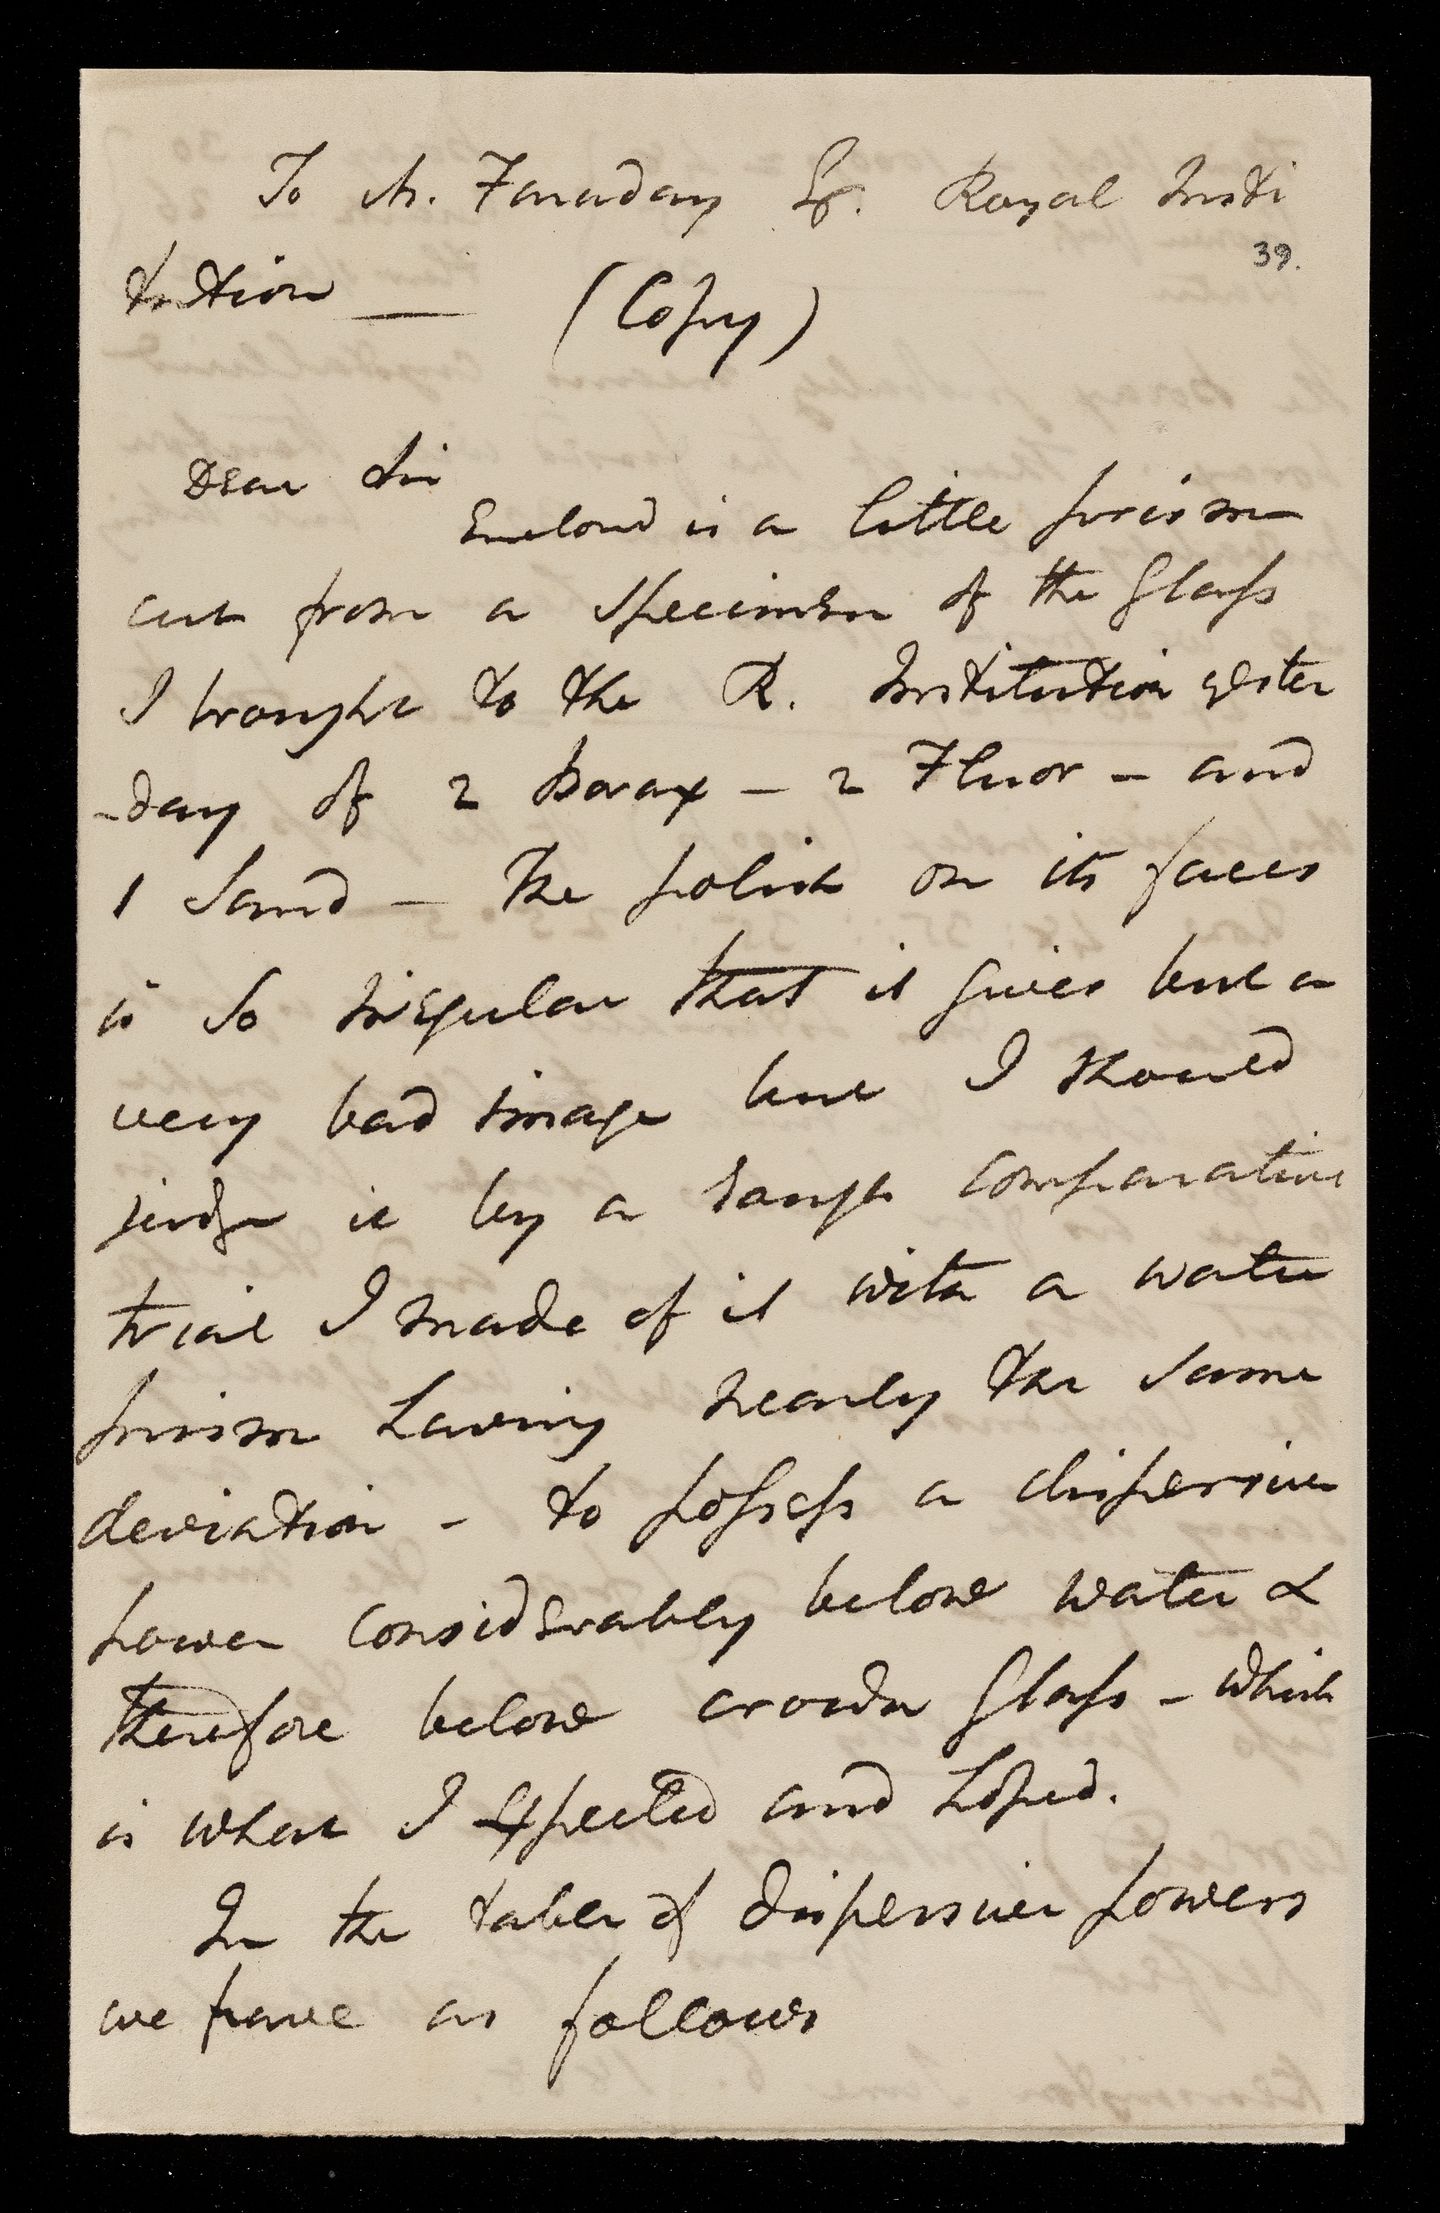 To M. Faraday Esqr. Royal Insti
39.
tution — (Copy)
Dear Sir
Enclosed is a little prism
cut from a specimen of the Glass
I brought to the R. Institution yester
-day of 2 Borax – 2 Fluor – and
1 Sand – The polish on its faces
is so irregular that it gives but a
very bad image but I should
judge it by a rough comparative
trial I made of it with a water
prism having nearly the same
deviation – to possess a dispersive
power considerably below water &
therefore below crown Glass – which
is what I expected and hoped.
In the tables of dispersive powers
we have as follows